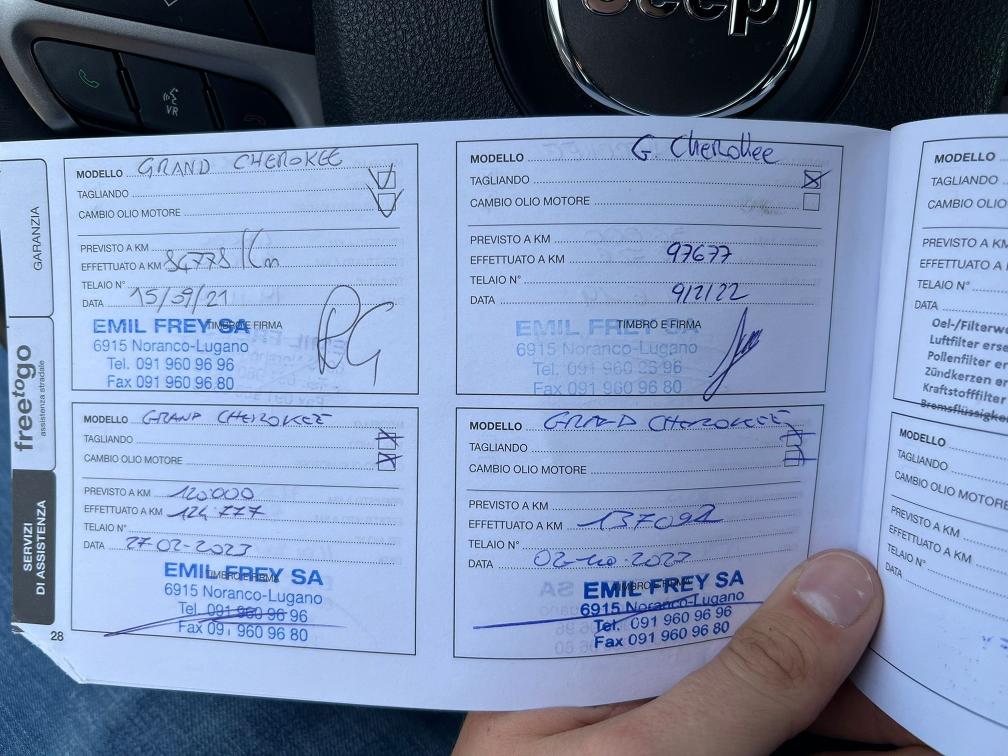 Jeep
VR
GARANZIA
freetogo
assistenza stradale
SERVIZI
DI ASSISTENZA
28
MODELLO GRAND CHEROKEE
TAGLIANDO
CAMBIO OLIO MOTORE
PREVISTO A KM
EFFETTUATO A KM 84778 Km
TELAIO N°
DATA 15/09/21
TIMBRO E FIRMA
EMIL FREY SA
6915 Noranco-Lugano
Tel. 091 960 96 96
Fax 091 960 96 80
MODELLO G. Cherokee
TAGLIANDO
CAMBIO OLIO MOTORE
PREVISTO A KM
EFFETTUATO A KM 97677
TELAIO N°
DATA 9/2/22
TIMBRO E FIRMA
EMIL FREY SA
6915 Noranco-Lugano
Tel. 091 960 96 96
Fax 091 960 96 80
MODELLO GRAND CHEROKEE
TAGLIANDO
CAMBIO OLIO MOTORE
PREVISTO A KM 120'000
EFFETTUATO A KM 124'777
TELAIO N°
DATA 27-02-2023
TIMBRO E FIRMA
EMIL FREY SA
6915 Noranco-Lugano
Tel. 091 960 96 96
Fax 091 960 96 80
MODELLO GRAND CHEROKEE
TAGLIANDO
CAMBIO OLIO MOTORE
PREVISTO A KM
EFFETTUATO A KM 137092
TELAIO N°
DATA 02-10-2023
TIMBRO E FIRMA
EMIL FREY SA
6915 Noranco-Lugano
Tel. 091 960 96 96
Fax 091 960 96 80
MODELLO
TAGLIANDO
CAMBIO OLIO
PREVISTO A KM
EFFETTUATO A
TELAIO N°
DATA
Oel-/Filterw
Luftfilter erse
Pollenfilter er
Zündkerzen e
Kraftstofffilter
Bremsflüssigk
MODELLO
TAGLIANDO
CAMBIO OLIO MOTORE
PREVISTO A KM
EFFETTUATO A KM
TELAIO N°
DATA